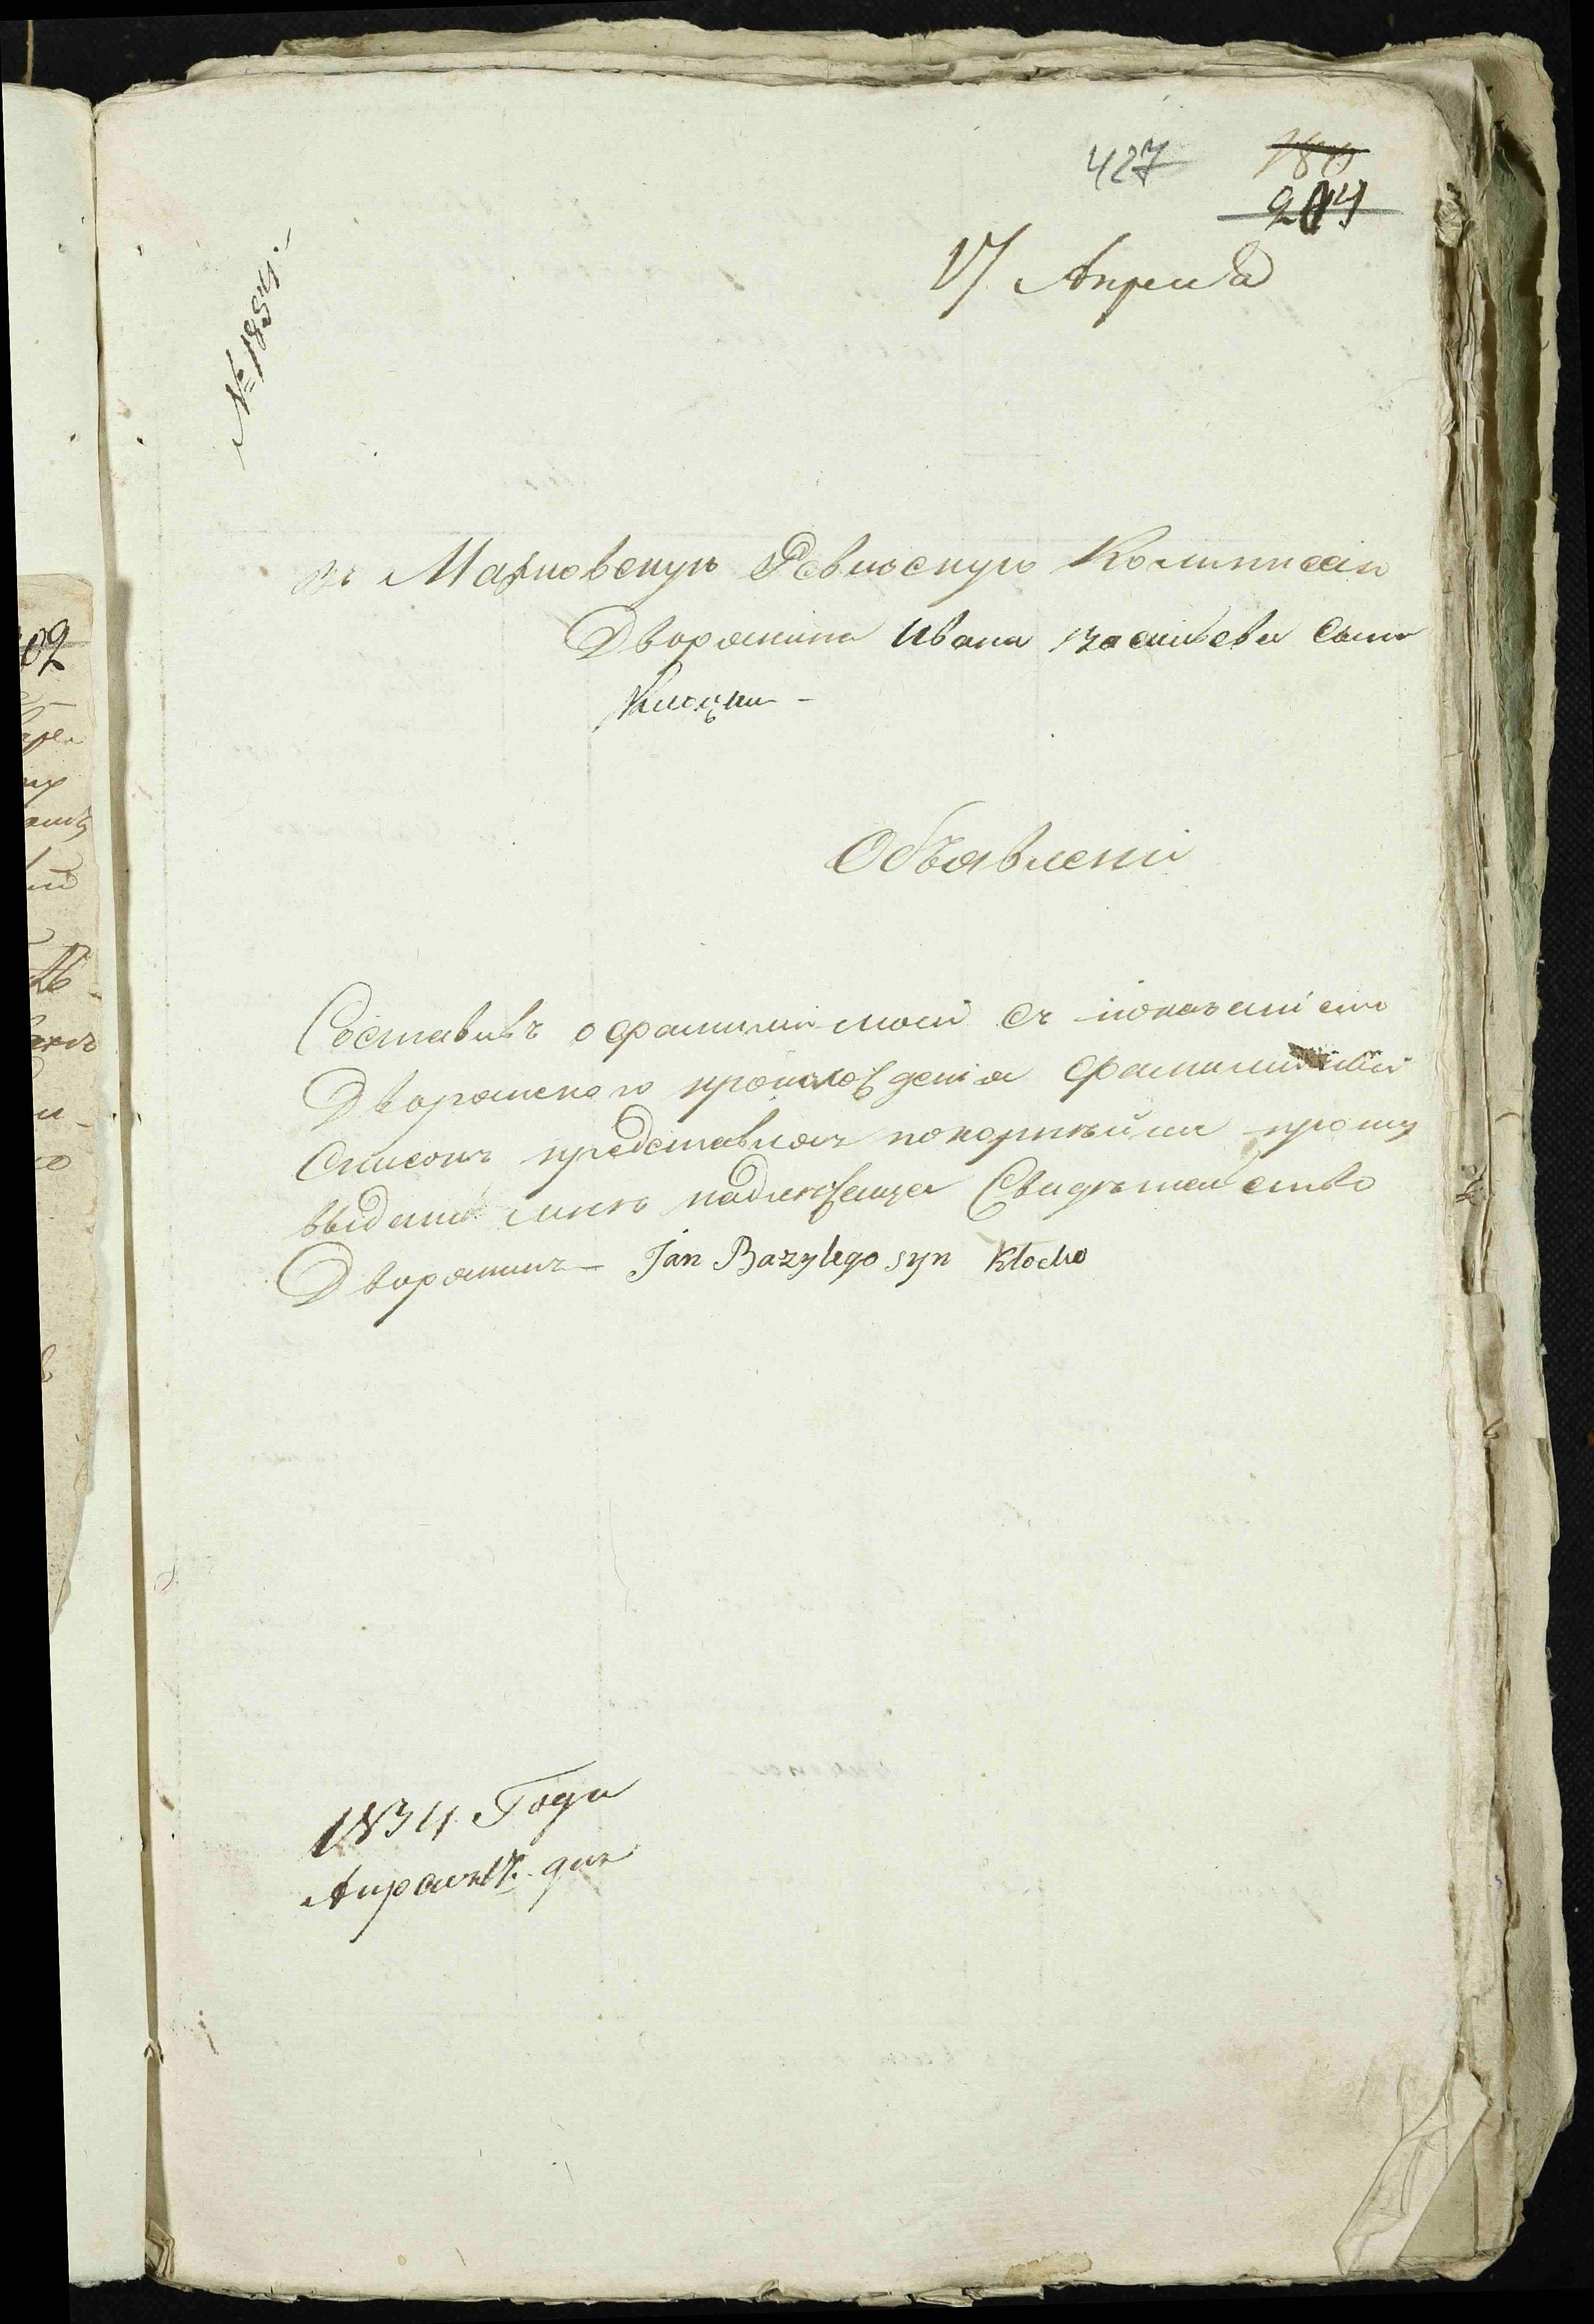 427
180
204
17 Апреля
№ 1854.
Въ Махновскую Ревизскую Коммисію
Дворянина Ивана Васильева Сына
Клоцки -
Объявленіе
Составивъ о фамиліи моей съ показаніемъ
Дворянскаго происхожденія фамильный
Списокъ представляя покорнѣйше прошу
выдать мнѣ надлежаще Свидѣтельство
Дворянинъ - Jan Bazylego syn Kłocko
1834 Года
Апреля 17. дня